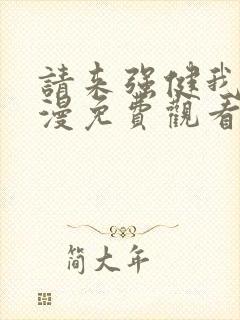 請来强健我
漫免費觀看
简大年